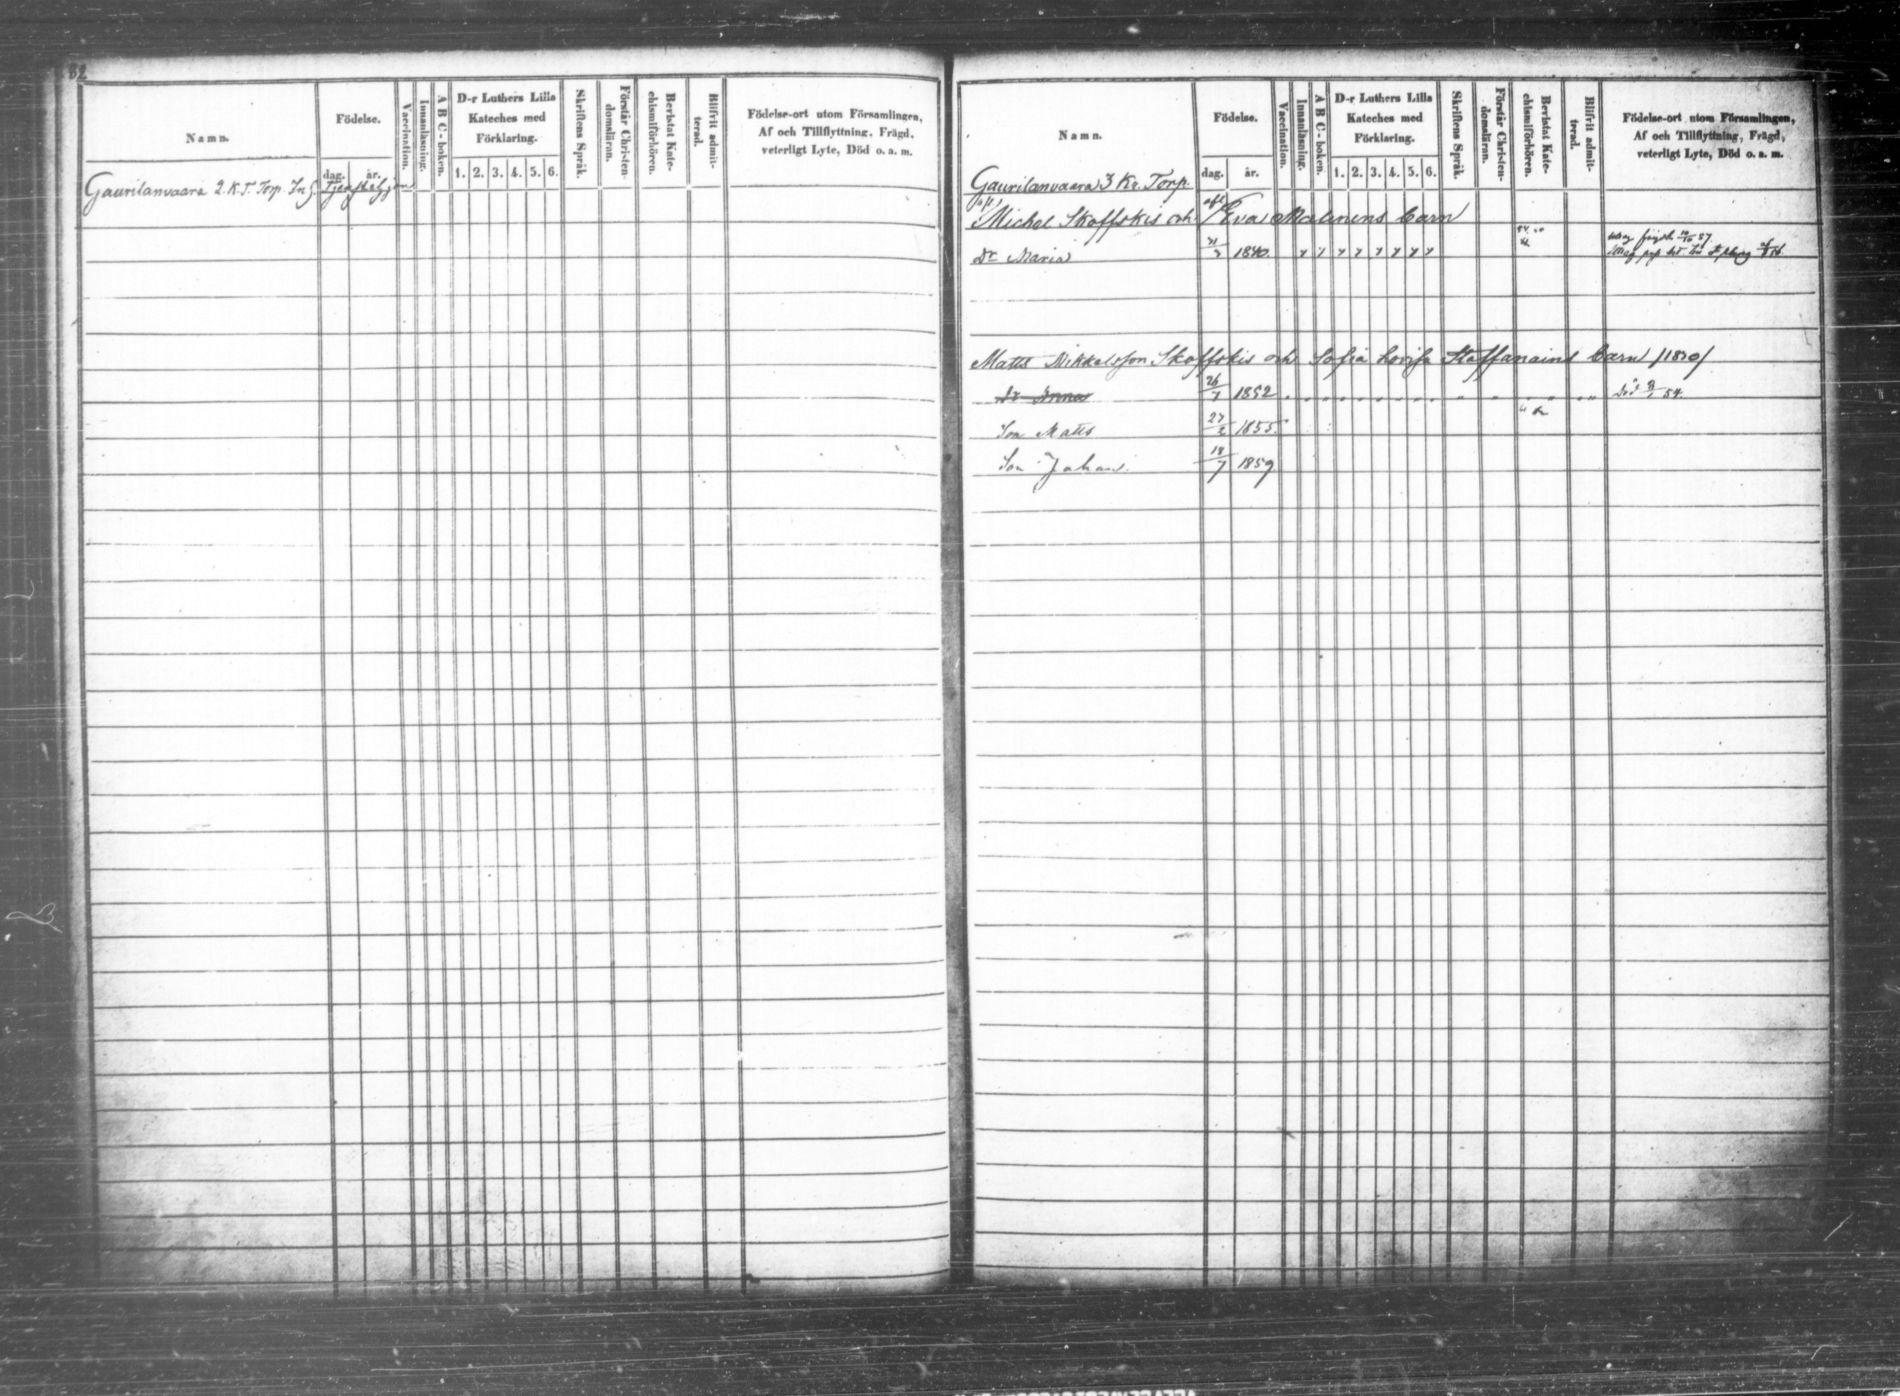 82
Namn. Födelse. Vaccination. Innanläsning. A B C-boken. D-r Luthers Lilla Kateches med Förklaring. Skriftens Språk. Förstår Christendomsläran. Bevistat Katechismiförhören. Blifvit admitterad. Födelse-ort utom Församlingen, Af och Tillflyttning, Frägd, veterligt Lyte, Död o. a. m.
dag. år. 1. 2. 3. 4. 5. 6.
Gaurilanvaara 2. K. T. Torp.
Namn. Födelse. Vaccination. Innanläsning. A B C-boken. D-r Luthers Lilla Kateches med Förklaring. Skriftens Språk. Förstår Christendomsläran. Bevistat Katechismiförhören. Blifvit admitterad. Födelse-ort utom Församlingen, Af och Tillflyttning, Frägd, veterligt Lyte, Död o. a. m.
dag. år. 1. 2. 3. 4. 5. 6.
Gaurilanvaara 3 Kr. Torp.
Michel Skoffskis och Eva Malinens barn
Dr Maria 1840.
Matts Mikkelsson Skoffskis och Sofia Lovisa Staffanains barn /1830/
Dr Anna 26/7 1852 Död 54.
Son Matts 27/2 1855
Son Johan. 18/7 1859